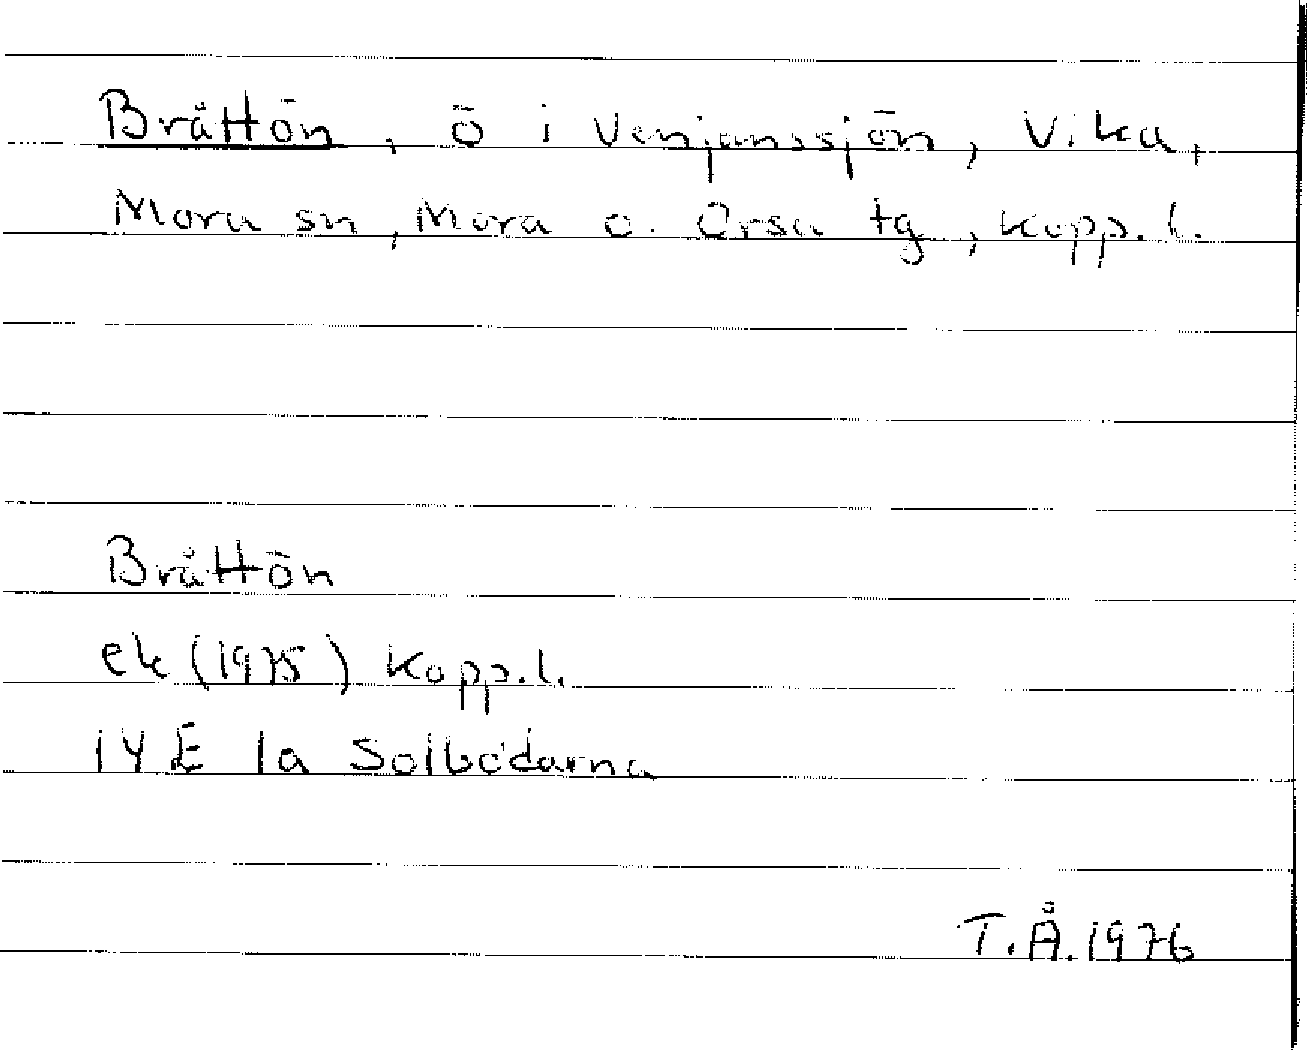 Bråttön, ö i Venjanssjön, Vika,
Mora sn, Mora o. Orsa tg, Kopp. l.
Bråttön
ek (1975) Kopp. l.
14E 1a Solbodarna
T.Å. 1976